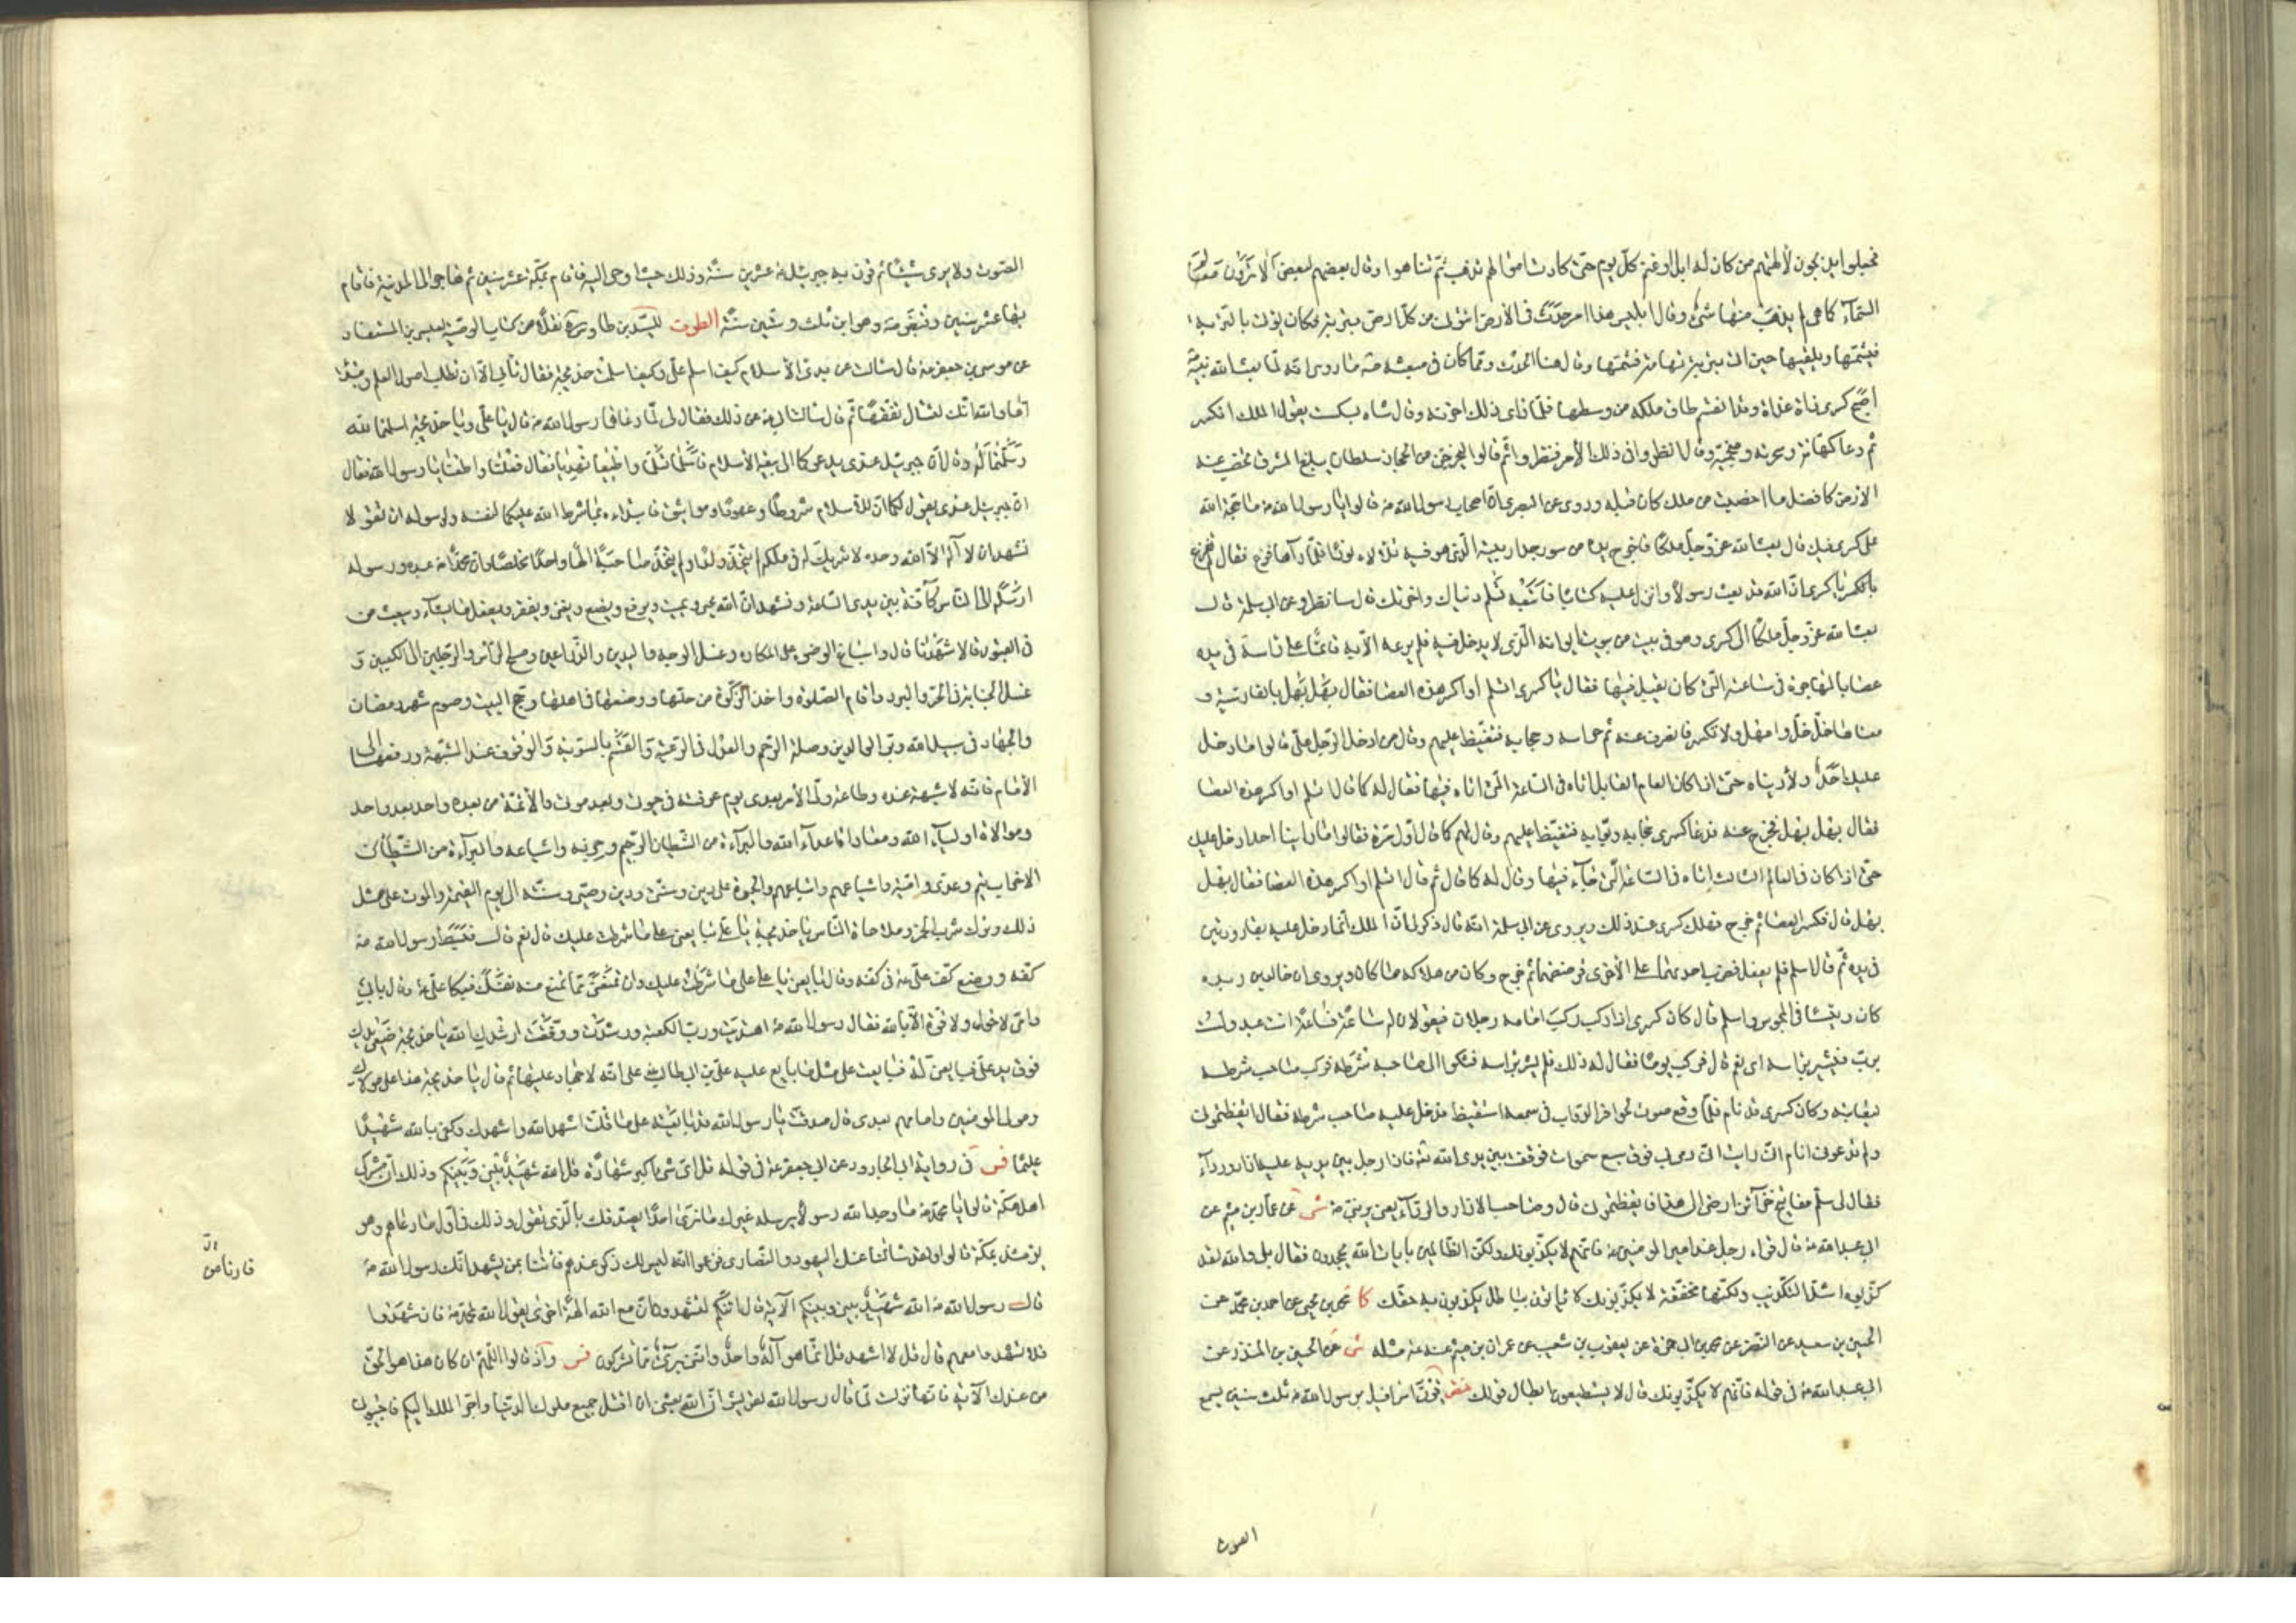 فجعلوا يذبحون لآلهتهم من كان له ابل او غنم كل يوم حتى كادت اموالهم تذهب ثم تناهوا وقال بعضهم لبعض الا ترون معالم
السماء كما هى لم يذهب منها شئ وقال ابليس هذا امر حدث فى الأرض ائتونى من كل ارض بتربة فكان يؤتى بالتربة
فيشمها ويلقيها حتى اتى بتربة تهامة فشمها وقال هنا الحدث ومما كان فى مبعثه ما روى انه لما بعث الله نبيه
اصبح كسرى ذات غداة وقد انقصم طاق ملكه من وسطها فلما راى ذلك احزنه وقال شاه بشكست يقول الملك انكسر
ثم دعا كهانه وسحرته ومنجميه وقال انظروا فى ذلك الأمر فنظروا ثم قالوا ليخرجن من الحجاز سلطان يبلغ المشرق تخصب عنه
الارض كافضل ما اخصبت من ملك كان قبله وروى عن البصرى ان اصحاب رسول الله ص قالوا يا رسول الله ما حجة الله
على كسرى فيك قال بعث الله عز وجل ملكا فاخرج يده من سور جدار بيته الذى هو فيه تلألأ نورا فلما رآها فزع فقال لم تفزع
يا كسرى ان الله قد بعث رسولا وانزل عليه كتابا فاتبعه تسلم دنياك واخرتك قال سانظر وعن ابى سلمة قال
بعث الله عز وجل ملكا الى كسرى وهو فى بيت من بيوت ايوانه الذى لا يدخل فيه فلم يرعه الا به قائما على راسه فى يده
عصا بالهاجرة فى ساعته التى كان يقيل فيها فقال يا كسرى اتسلم او اكسر هذه العصا فقال بهل بهل بالفارسية و
معناها خل خل وامهل ولا تكسر فانصرف عنه ثم حراسه وحجابه فتغيظ عليهم وقال من ادخل الرجل على قالوا ما دخل
عليك احد ولا رايناه حتى اذا كان العام القابل اتاه فى الساعة التى اتاه فيها فقال له كما قال اتسلم او اكسر هذه العصا
فقال بهل بهل فخرج عنه فدعا كسرى حجابه وبوابه فتغيظ عليهم وقال لهم كما قال اول مرة فقالوا ما راينا احدا دخل عليك
حتى اذا كان فى العام الثالث اتاه فى الساعة التى جاء فيها وقال له كما قال ثم قال اتسلم او اكسر هذه العصا فقال بهل
بهل قال فكسر العصا ثم خرج فهلك كسرى عند ذلك ويروى عن ابى سلمة انه قال ذكر لى ان الملك انما دخل عليه بقارورتين
فى يده ثم قال اسلم فلم يفعل فضرب احديهما على الأخرى فرضضهما ثم خرج وكان من هلاكه ما كان ويروى ان خالد بن
كان رئيسا فى المجوس واسلم قال كان كسرى اذا ركب ركب امامه رجلان فيقولان له ساعة فساعة انت عبد ولست
برب فيشير براسه اى نعم قال فركب يوما فقال له ذلك فلم يشر براسه فشكوا الى صاحب شرطه فركب صاحب شرطه
ليعاتبه وكان كسرى قد نام فلما وقع صوت حوافر الدواب فى سمعه استيقظ فدخل عليه صاحب شرطه فقال ايقظتمونى
ولم تدعونى انام انى رايت انه رقى بى فوق سبع سموات فوقفت بين يدى الله فاذا رجل بين يديه عليه ازار ورداء
فقال لى سلم مفاتيح خزائن ارضى الى هذا فايقظتمونى قال وصاحب الازار والرداء يعنى به النبى ص شى عن عمار بن ميثم عن
ابى عبد الله ع قال قراء رجل عند امير المؤمنين ع فانهم لا يكذبونك ولكن الظالمين بايات الله يجحدون فقال بلى والله لقد
كذبوه اشد التكذيب ولكنها مخففة لا يكذبونك لا يأتون بباطل يكذبون به حقك كا محمد بن يحيى عن احمد بن محمد عن
الحسين بن سعيد عن النضر عن محمد بن ابى حمزة عن يعقوب بن شعيب عن عمران بن ميثم عنه ع مثله شى عن الحسين بن المنذر عن
ابى عبد الله ع فى قوله فانهم لا يكذبونك قال لا يستطيعون ابطال قولك قرن اسرافيل برسول الله ص ثلث سنين يسمع
الصوت
الصوت ولا يرى شيئا ثم قرن به جبرئيل ع عشرين سنة وذلك حيث اوحى اليه فاقام بمكة عشر سنين ثم هاجر الى المدينة فاقام
بها عشر سنين وقبض ص وهو ابن ثلث وستين سنة الطرف للسيد بن طاوس نقلا من كتاب الوصية لعيسى بن المستفاد
عن موسى بن جعفر ع قال سألت عن بدئ الأسلام كيف اسلم على وكيف اسلمت خديجة فقال تأبى الا ان تطلب اصول العلم ومبتداه
اما والله انك لتسأل تفقها ثم قال سالت ابى ع عن ذلك فقال لى لما دعاهما رسول الله ص قال يا على ويا خديجة اسلمتما لله
وسلمتما له وقال ان جبرئيل عندى يدعوكما الى بيعة الأسلام فاسلما تسلما واطيعا تهديا فقالا فعلنا واطعنا يا رسول الله فقال
ان جبرئيل عندى يقول لكما ان للاسلام شروطا وعهودا ومواثيق فابتداءه بما شرط الله عليكما لنفسه ولرسوله ان تقولا
نشهد ان لا اله الا الله وحده لا شريك له فى ملكه لم يتخذ ولدا ولم يتخذ صاحبة الها واحدا مخلصا وان محمدا ص عبده ورسوله
ارسله الى الناس كافة بين يدى الساعة ونشهد ان الله يحيى ويميت ويرفع ويضع ويغنى ويفقر ويفعل ما يشاء ويبعث من
فى القبور قالا شهدنا قال واسباغ الوضوء على المكاره وغسل الوجه واليدين والذراعين ومسح الراس والرجلين الى الكعبين و
غسل الجنابة فى الحر والبرد واقام الصلوة واخذ الزكوة من حلها ووضعها فى اهلها وحج البيت وصوم شهر رمضان
والجهاد فى سبيل الله وبر الوالدين وصلة الرحم والعدل فى الرعية والقسم بالسوية والوقوف عند الشبهة ورفعها الى
الأمام فانه لا شبهة عنده وطاعة ولى الأمر بعدى ومعرفته فى حيوتى وبعد موتى والأئمة من بعده واحد بعد واحد
وموالاة اولياء الله ومعاداة اعداء الله والبراءة من الشيطان الرجيم وحزبه واشياعه والبراءة من الأحزاب
تيم وعدى وامية واشياعهم واتباعهم والحيوة على دينى وسنتى ودين وصيى وسنته الى يوم القيمة والموت على مثل
ذلك وترك شرب الخمر وملاحاة الناس يا خديجة
كفه ووضع كف على ع فى كفه وقال بايعنى يا على على ما شرطت عليك وان تمنعنى مما تمنع منه نفسك فبكى على ع وقال بابى
وامى لا حول ولا قوة الا بالله فقال رسول الله ص اهتديت ورب الكعبة ورشدت ووفقت ارشدك الله يا خديجة ضعى يدك
فوق يد على فبايعى له فبايعت على مثل ما بايع عليه على بن ابيطالب ع على انه لا جهاد عليها ثم قال يا خديجة هذا على مولاك
ومولى المؤمنين وامامهم بعدى قال صدقت يا رسول الله قد بايعته على ما قلت اشهد الله واشهدك وكفى بالله شهيدا
عليما فس فى رواية ابى الجارود عن ابى جعفر ع فى قوله قل اى شئ اكبر شهادة قل الله شهيد بينى وبينكم وذلك ان مشركى
اهل مكة قالوا يا محمد ما وجد الله رسولا يرسله غيرك ما نرى احدا يصدقك بالذى تقول وذلك فى اول ما دعاهم وهو
يومئذ بمكة قالوا ولقد سالنا عنك اليهود والنصارى فزعموا انه ليس لك ذكر عندهم فاتنا بمن يشهد انك رسول الله ص
قال رسول الله ص الله شهيد بينى وبينكم الآية قال ائنكم لتشهدون ان مع الله الهة اخرى يقول الله لمحمد ص فان شهدوا
فلا تشهد معهم قال قل لا اشهد قل انما هو اله واحد واننى برئ مما تشركون فس واذ قالوا اللهم ان كان هذا هو الحق
من عندك الآية فانها نزلت لما قال رسول الله لقريش ان الله بعثنى ان اقتل جميع ملوك الدنيا واجر الملك اليكم فاجيبونى